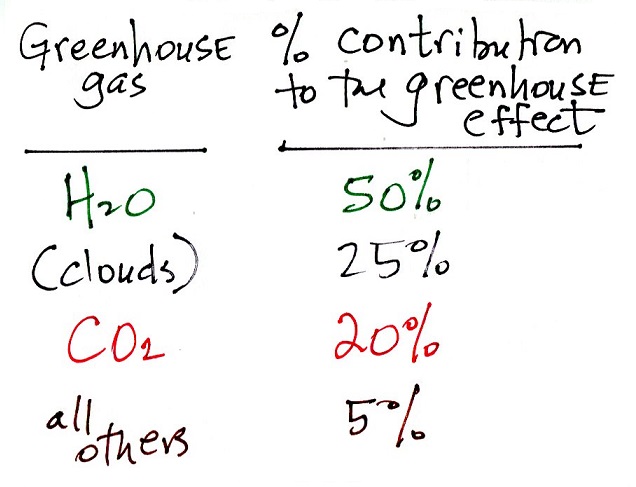 Greenhouse gas % contribution to the greenhouse effect
H2O 50%
(clouds) 25%
CO2 20%
all others 5%